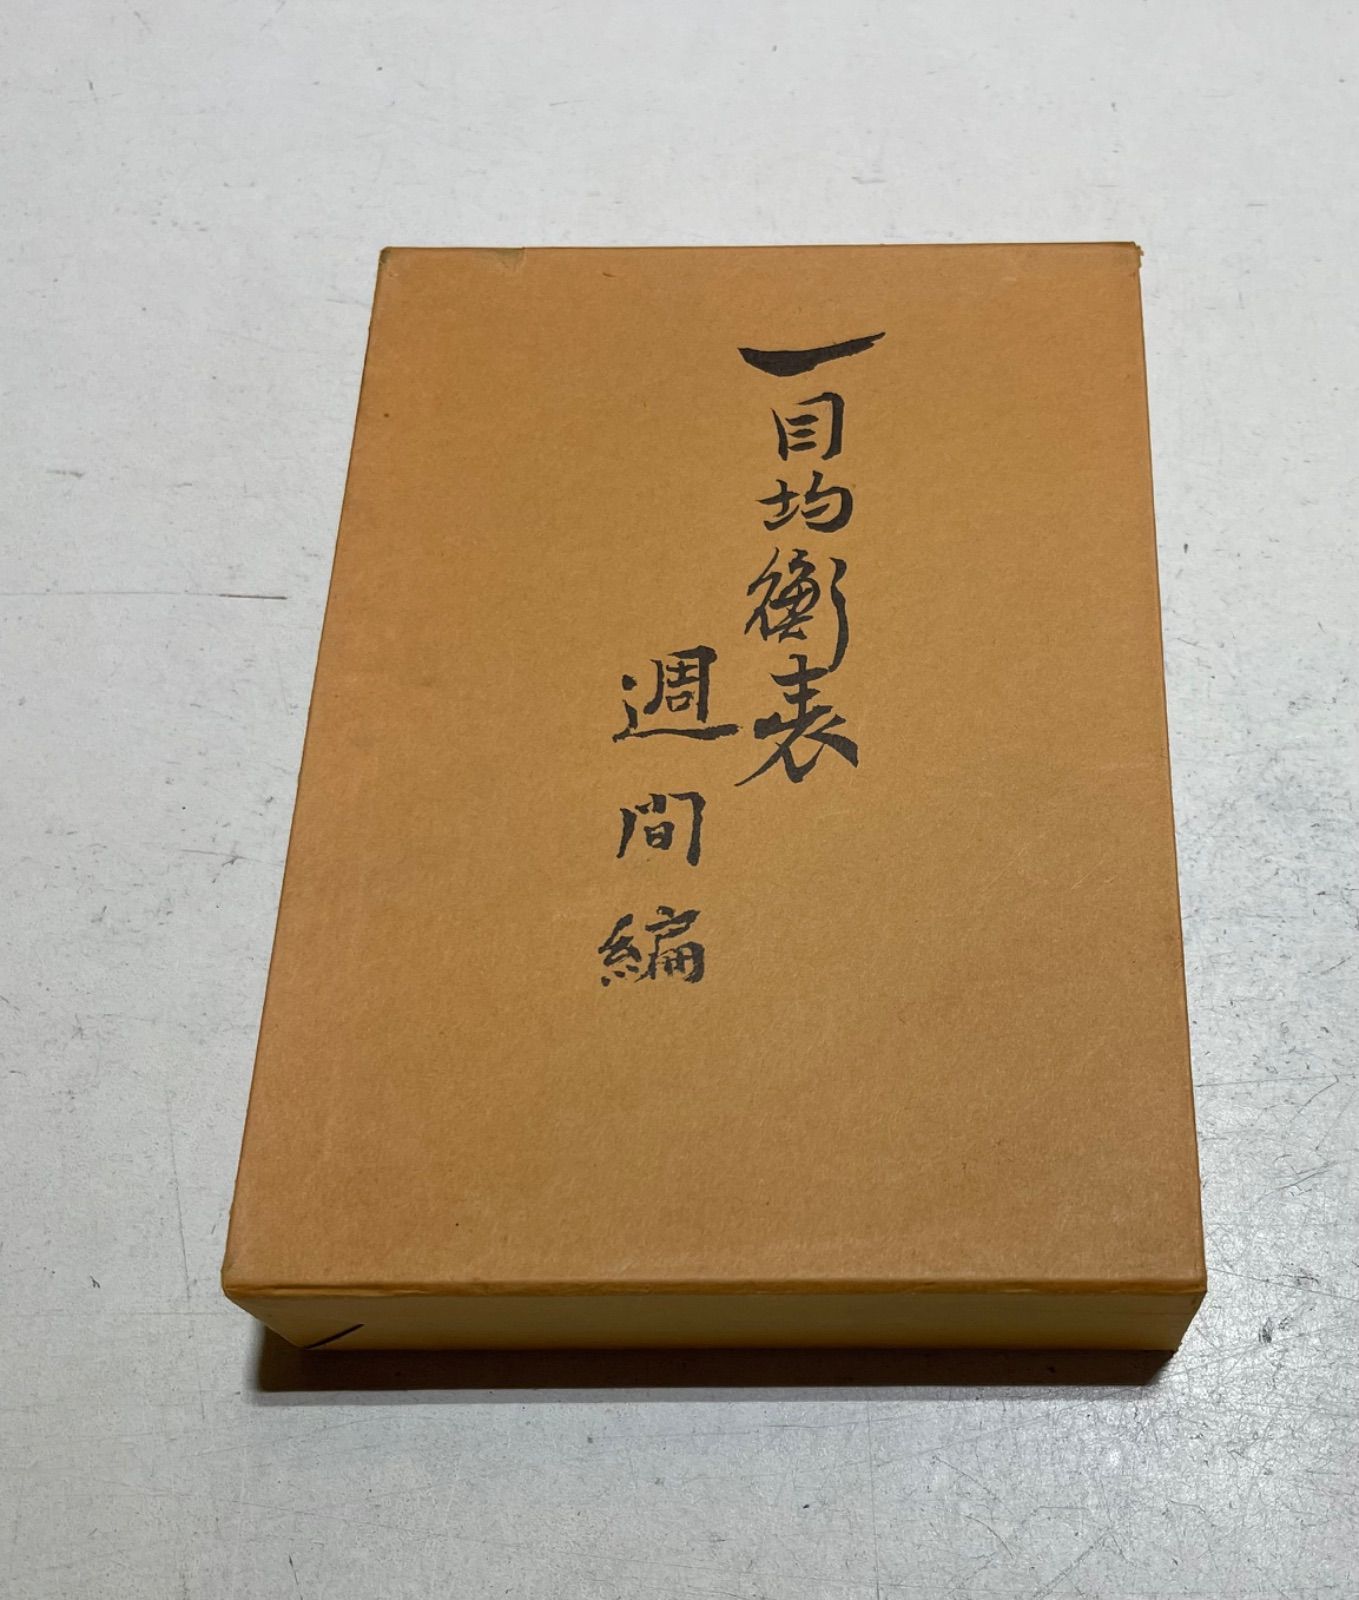 一目均衡表
週間編